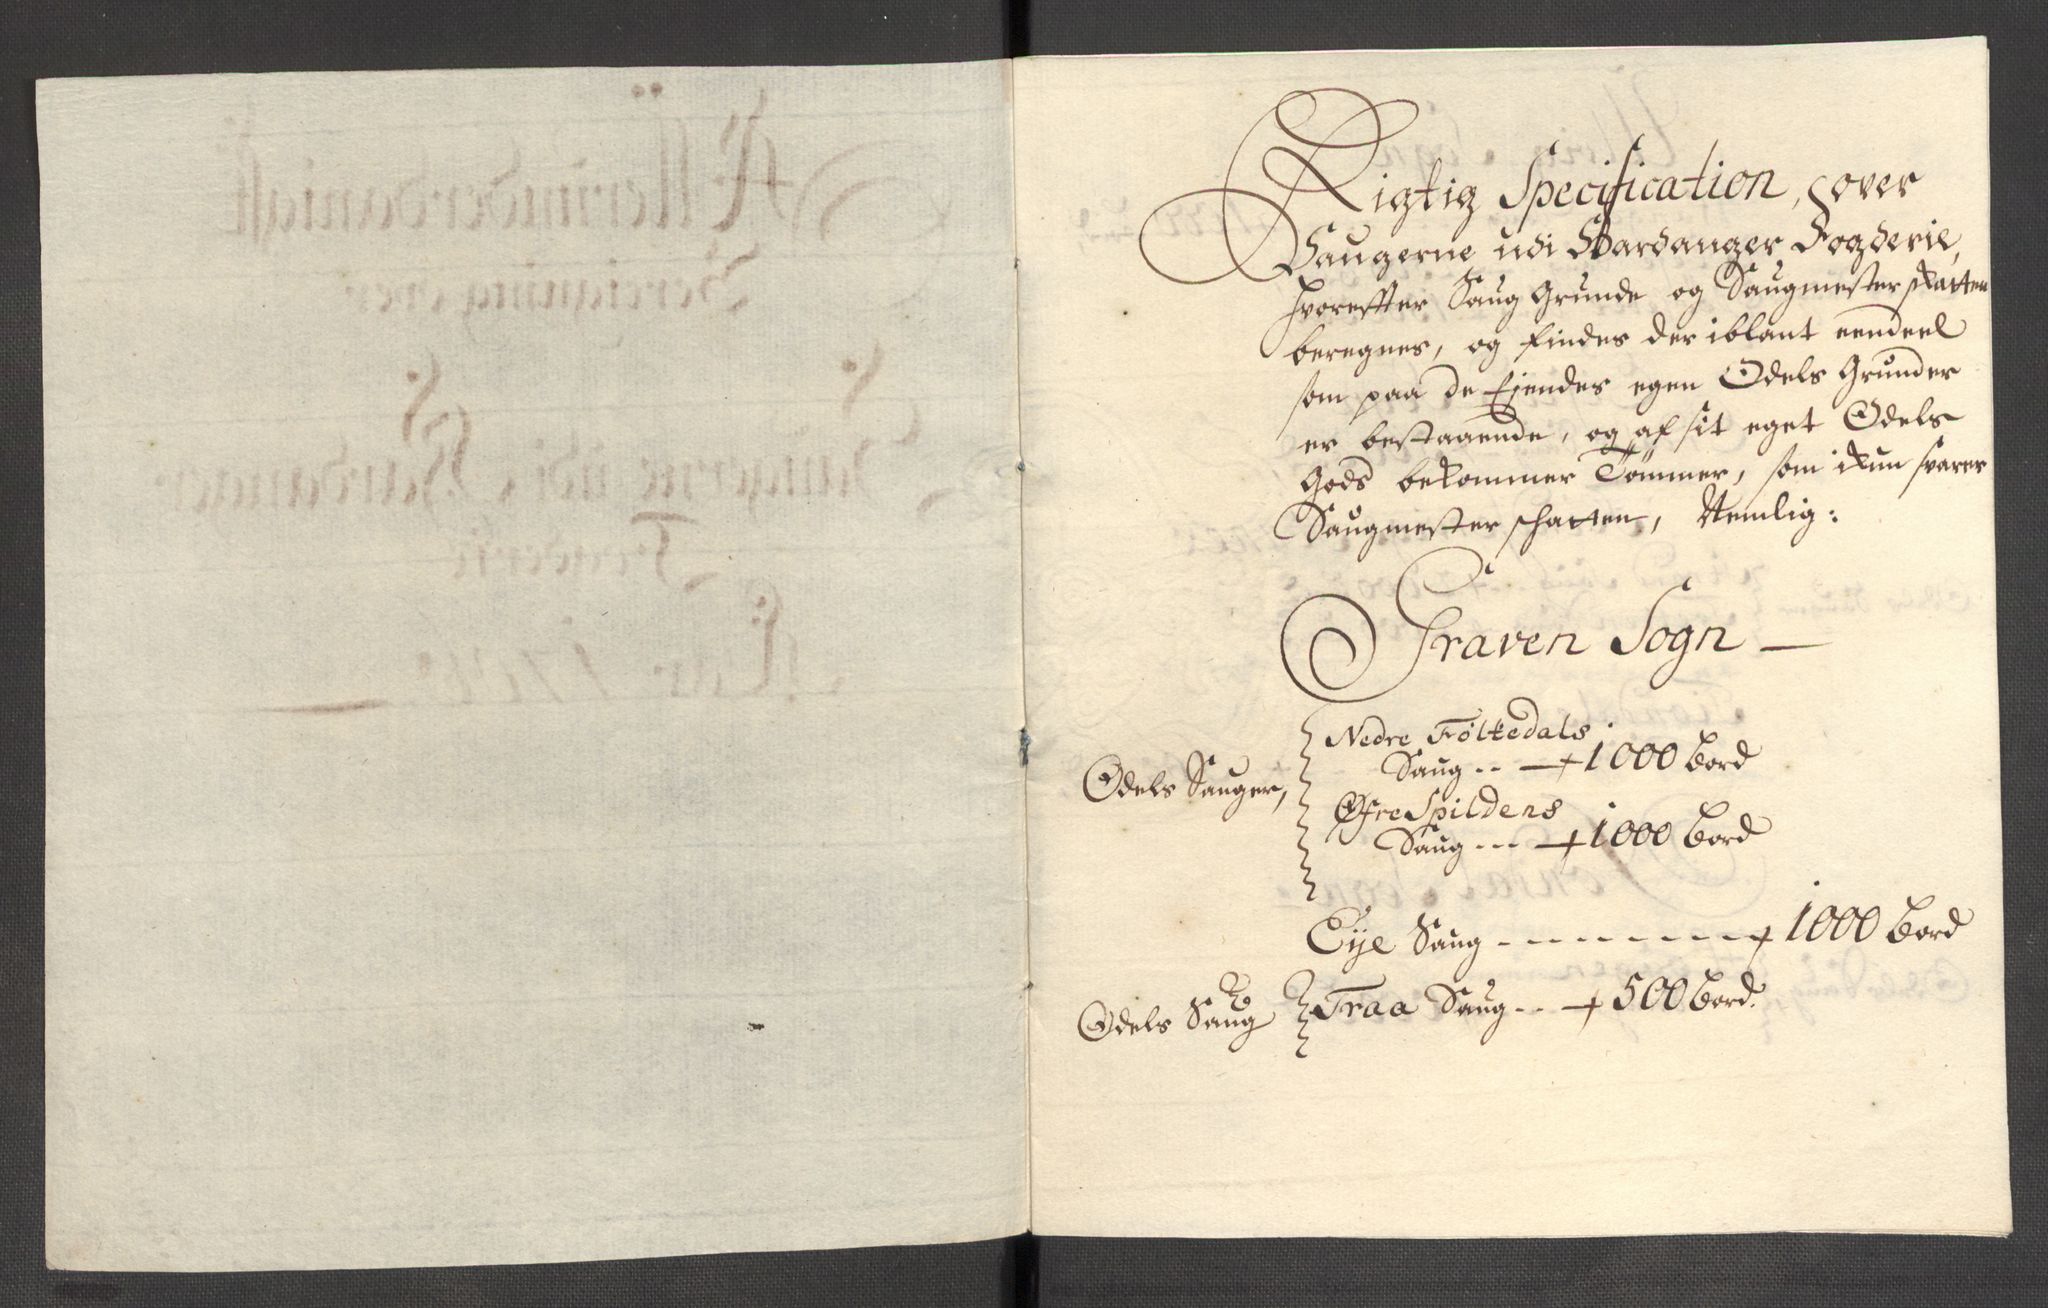 Rigtig Specification, over
Saugerne udi Hardanger Fogderie,
hvoreffter Saug Grunde og Saugmester skatten
beregnes, og findes der iblant eendeel
som paa de Ejendes egen Odels Grunder
er bestaaende, og af sit eget Odels
Gods bekommer Tømmer, som ikun svarer
Saugmester schatten, Nemlig:
Graven Sogn
Nedre Foltedals
Odels Sauger,
Saug .. 1000 Bord
Øfre Spildens
Saug ... 1000 Bord
Eye Saug 1000 Bord
Odels Saug
Traa Saug .. 500 Bord.